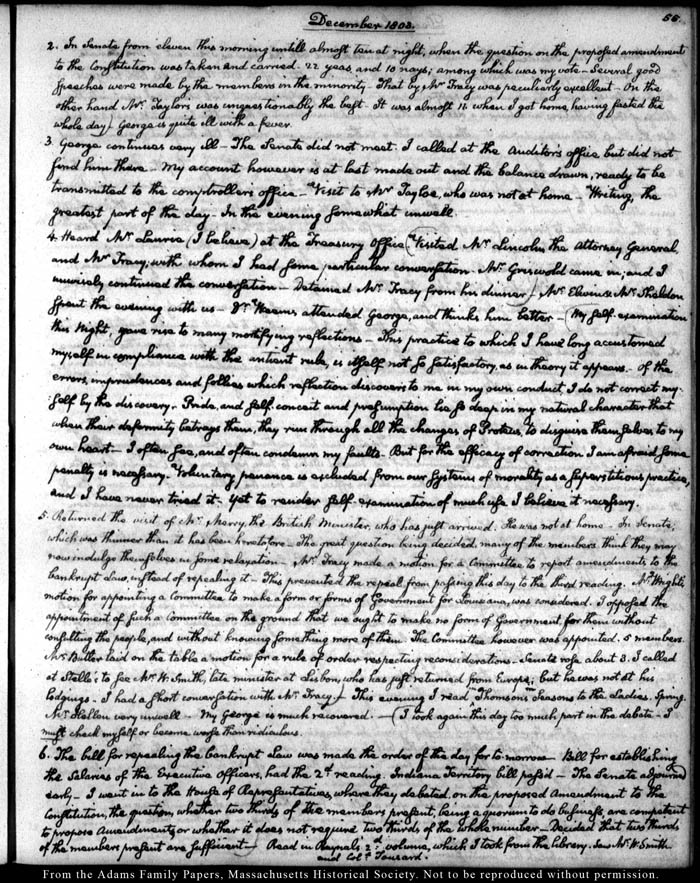 December 1803.
55.
2. In Senate from eleven this morning untill almost ten at night, when the question on the proposed amendment
to the Constitution was taken and carried. 22 yeas and 10 nays; among which was my vote – Several good
speeches were made by the members in the minority. That by Mr Tracy was peculiarly excellent – On the
other hand Mr. Taylors was unquestionably the best – It was almost 11 when I got home, having fasted the
whole day) George is quite ill with a fever.
3. George continues very ill – The Senate did not meet. I called at the Auditor's office but did not
find him there – My account however is at last made out and the balance drawn, ready to be
transmitted to the comptroller's office – Visit to Mr Tayloe, who was not at home – Writing, the
greatest part of the day – In the evening somewhat unwell.
4. Heard Mr Laurie (I believe) at the Treasury Office (Visited Mr Lincoln the Attorney General,
and Mr Tracy; with whom I had some particular conversation. Mr Griswold came in; and I
unwisely continued the conversation – Detained Mr Tracy from his dinner) Mr Elwin & Mr Sheldon
spent the evening with us – Dr Weems attended George, and thinks him better – (My self-examination
this Night, gave rise to many mortifying reflections – This practice to which I have long accustomed
myself in compliance with the antient rule, is itself not so satisfactory, as in theory it appears. Of the
errors, imprudences and follies which reflection discovers to me in my own conduct, I do not correct my-
self by the discovery. Pride, and self-conceit and presumption lie so deep in my natural character that
when their deformity betrays them, they run through all the changes of Proteus, to disguise themselves to my
own heart – I often see, and often condemn my faults – But for the efficacy of correction I am afraid some
penalty is necessary. Voluntary penance is excluded from our systems of morality as a superstitious practice,
and I have never tried it. Yet to render self-examination of much use I believe it necessary.
5. Returned the visit of Mr Merry, the British Minister, who has just arrived. He was not at home – In Senate;
which was thinner than it has been heretofore – The great question being decided, many of the members think they may
now indulge themselves in some relaxation – Mr. Tracy made a motion for a Committee to report amendments to the
bankrupt Law, instead of repealing it – This prevented the repeal from passing this day to the third reading. Mr Wright's
motion for appointing a Committee to make a form or forms of Government for Louisiana, was considered. I opposed the
appointment of such a Committee on the ground that we ought to make no form of Government, for them without
consulting the people, and without knowing something more of them. The Committee however was appointed. 5 members.
Mr Butler laid on the table a motion for a rule of order respecting reconsiderations – Senate rose about 3. I called
at Stelle's to see Mr W. Smith, late minister at Lisbon, who has just returned from Europe; but he was not at his
lodgings – I had a short conversation with Mr. Tracy.) This evening I read Thomson's Seasons to the Ladies. Spring.
Mr Hellen very unwell – My George is much recovered – (I took again this day too much part in the debate – I
must check myself or become worse than ridiculous.
6. The bill for repealing the bankrupt Law was made the order of the day for to-morrow – Bill for establishing
the Salaries of the Executive Officers, had the 2d reading. Indiana Territory bill pass'd – The Senate adjourned
early – I went in to the House of Representatives, where they debated, on the proposed Amendment to the
Constitution, the question, whether two thirds of the members present, being a quorum to do business, are competent
to propose Amendments, or whether it does not require two thirds of the whole number – Decided that two thirds
of the members present are sufficient) Read in Raynal's 2d volume, which I took from the library. Saw Mr W. Smith
and Colo. Toussard.
From the Adams Family Papers, Massachusetts Historical Society. Not to be reproduced without permission.